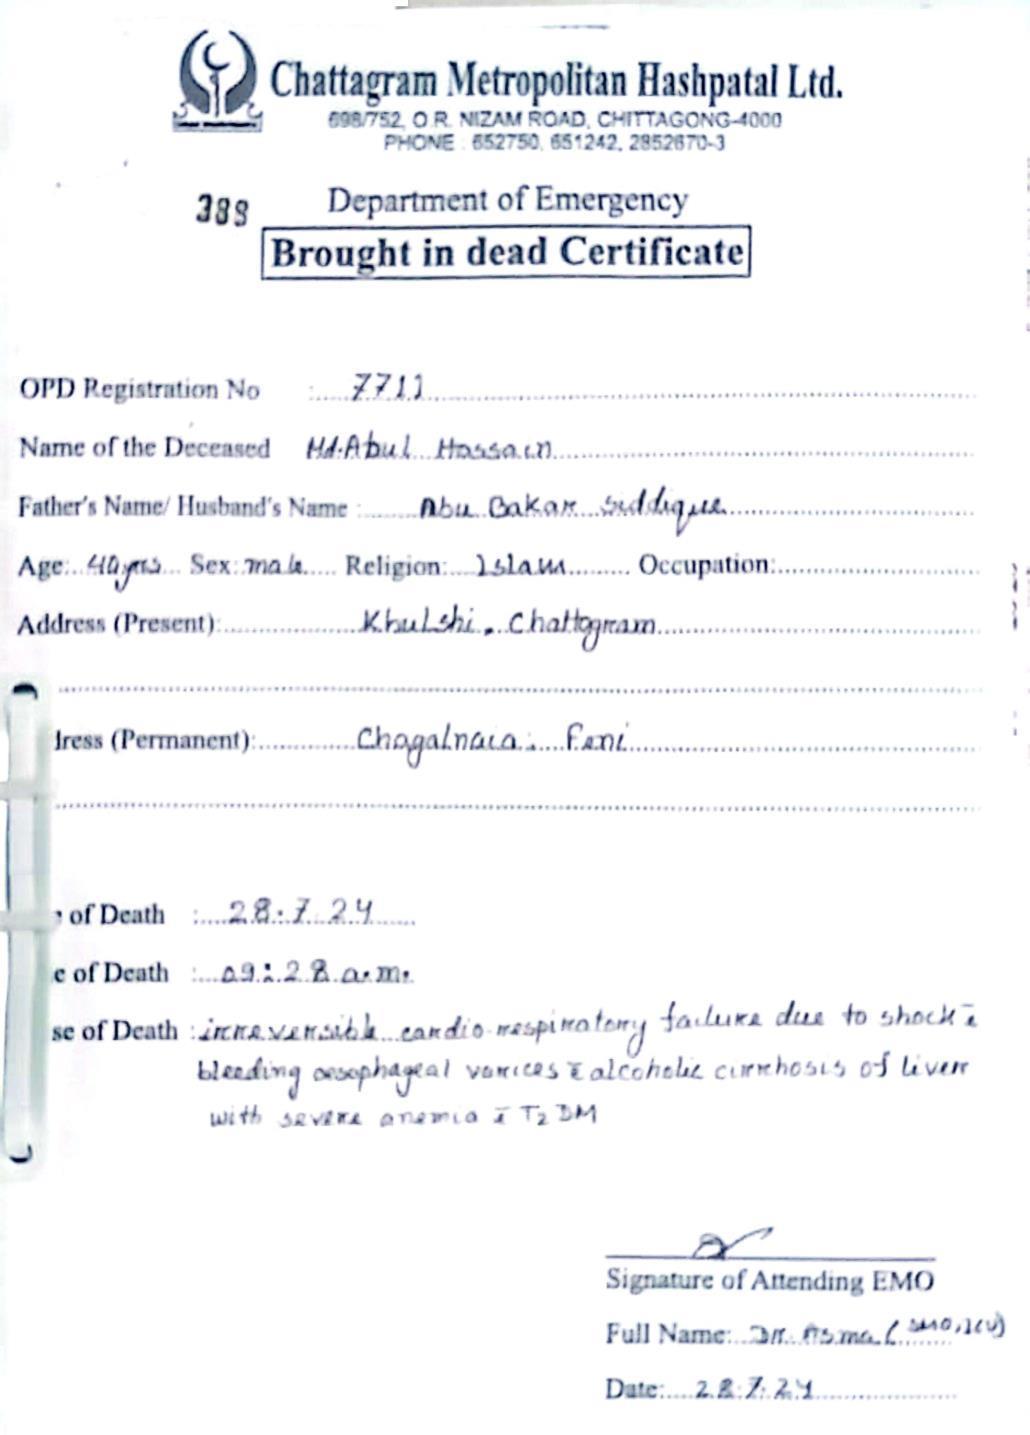 Chattagram Metropolitan Hashpatal Ltd.
698/752, O.R. NIZAM ROAD, CHITTAGONG-4000
PHONE : 652750, 651242, 2852670-3
388
Department of Emergency
Brought in dead Certificate
OPD Registration No : 7711
Name of the Deceased Md. Abul Hossain
Father's Name/ Husband's Name : Abu Bakar Siddique
Age: 40yrs Sex: male Religion: Islam Occupation:
Address (Present): Khulshi, Chattogram
dress (Permanent): Chagalnaia, Feni
of Death : 28.7.24
e of Death : 09:28 a.m.
se of Death : irreversible cardio-respiratory failure due to shock c̄
bleeding oesophageal varices c̄ alcoholic cirrhosis of liver
with severe anemia c̄ T2DM
Signature of Attending EMO
Full Name: Dr. Asma (SMO, ICU)
Date: 28.7.24